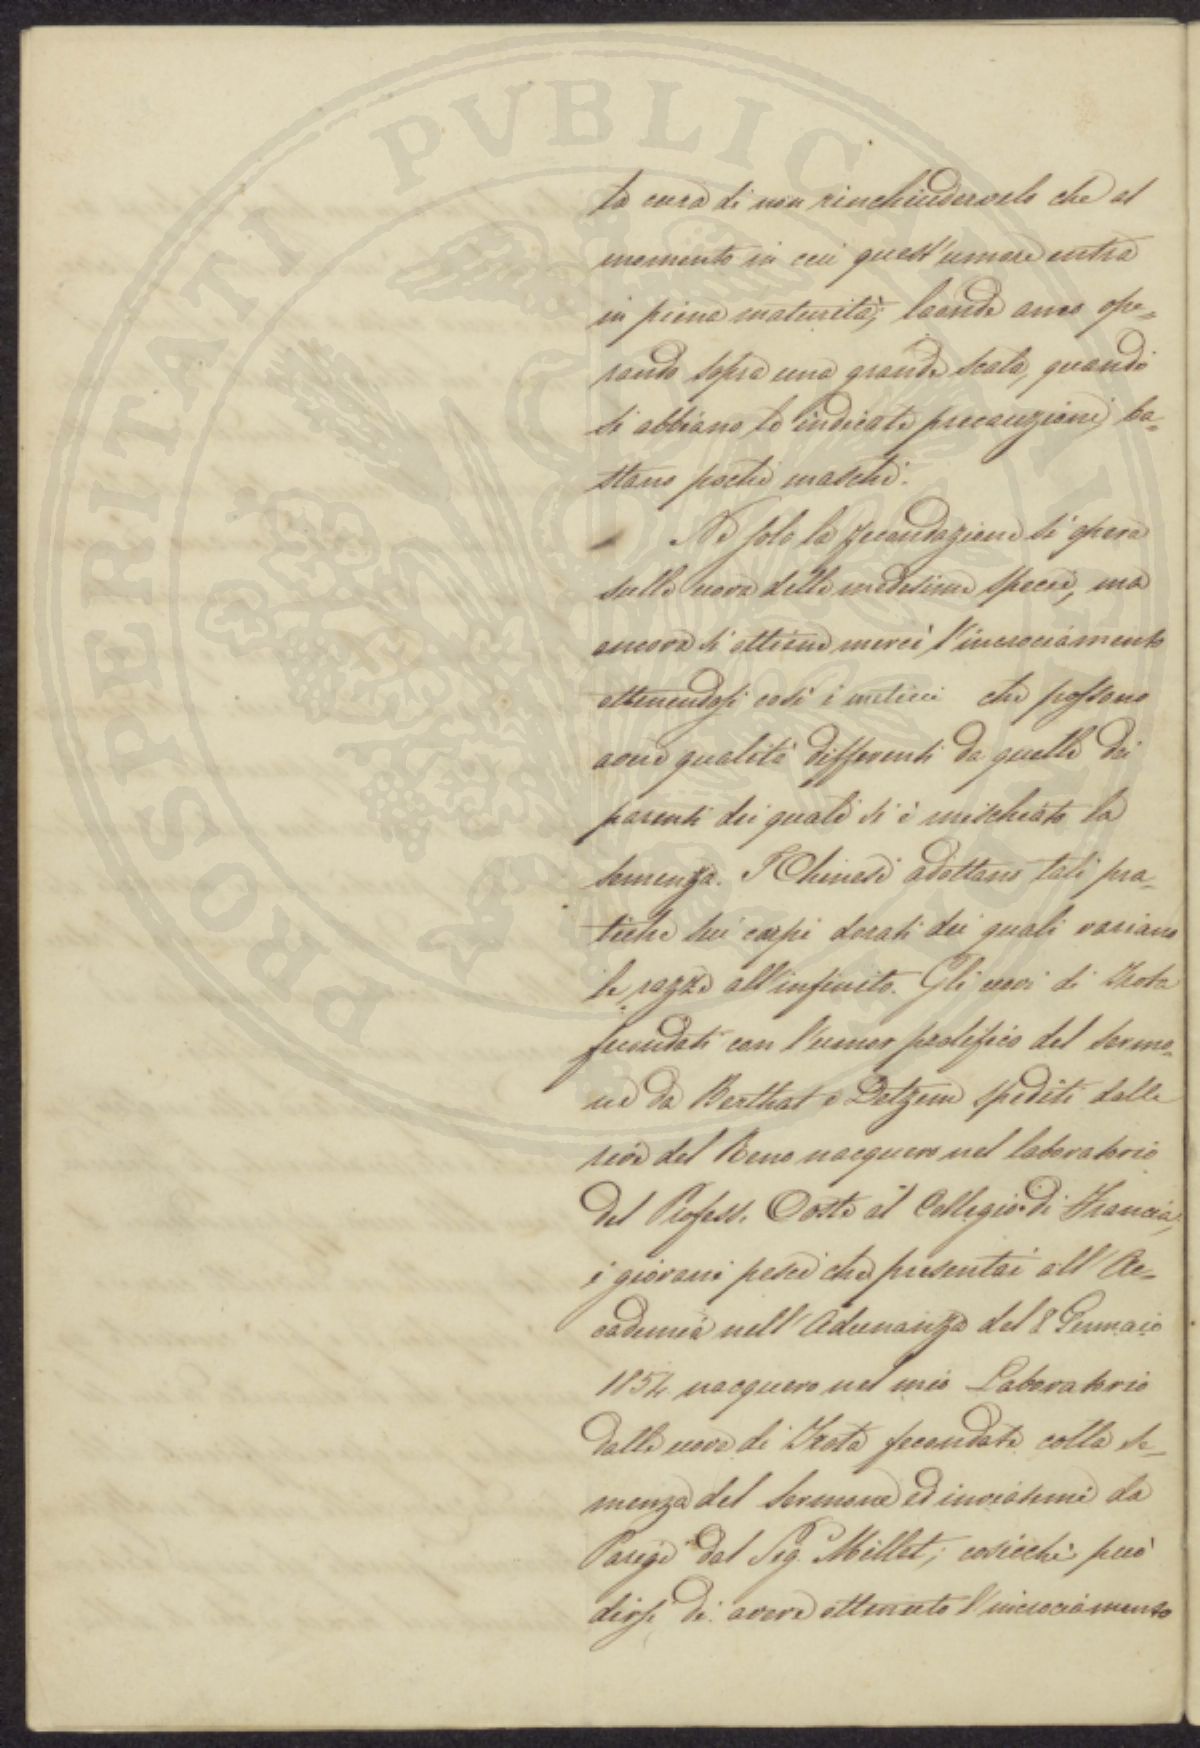 PROSPERITATI PVBLICAE
ta cura di non rinchiudervelo che al
momento in cui quest'umore entra
in piena maturità; laonde anco ope-
rando sopra una grande scala, quando
si abbiano le indicate precauzioni, ba-
stano pochi maschi.
Nè solo la fecondazione si opera
sulle uova delle medesime specie, ma
ancora si ottiene mercè l'incrociamento
ottenendosi così i meticci che possono
avere qualità differenti da quelle dei
parenti dei quali si è mischiato la
semenza. I Chinesi adottano tali pra-
tiche sui carpi dorati dei quali variano
le razze all'infinito. Gli uovi di Trota
fecundati con l'umor prolifico del sermo-
ne da Berthot e Detzem spediti dalle
rive del Reno nacquero nel laboratorio
del Profess. Coste al Collegio di Francia,
i giovani pesci che presentai all'Ac-
cademia nell'Adunanza del 8 Gennaio
1854 nacquero nel mio Laboratorio
dalle uova di Trota fecondate colla se-
menza del Sermone ed inviatemi da
Parigi dal Sig. Millet; cosicchè può
dirsi di avere ottenuto l'incrociamento